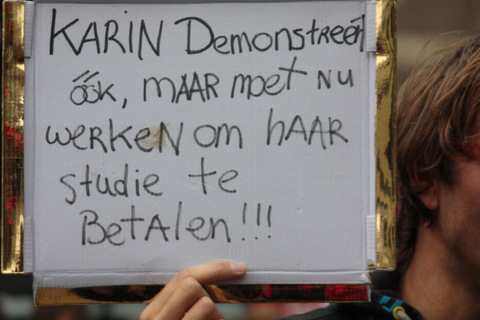 KARIN Demonstreert
óók, MAAR moet nu
werken om hAAR
studie te
Betalen!!!